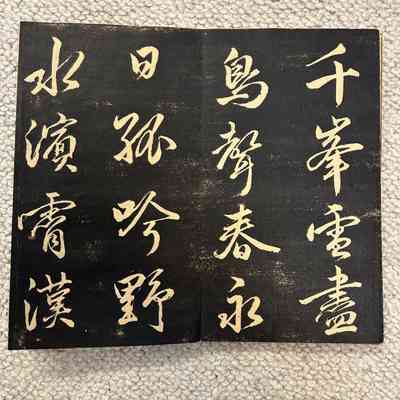 千峯雪盡
鳥聲春永
日孤吟野
水濱霄漢